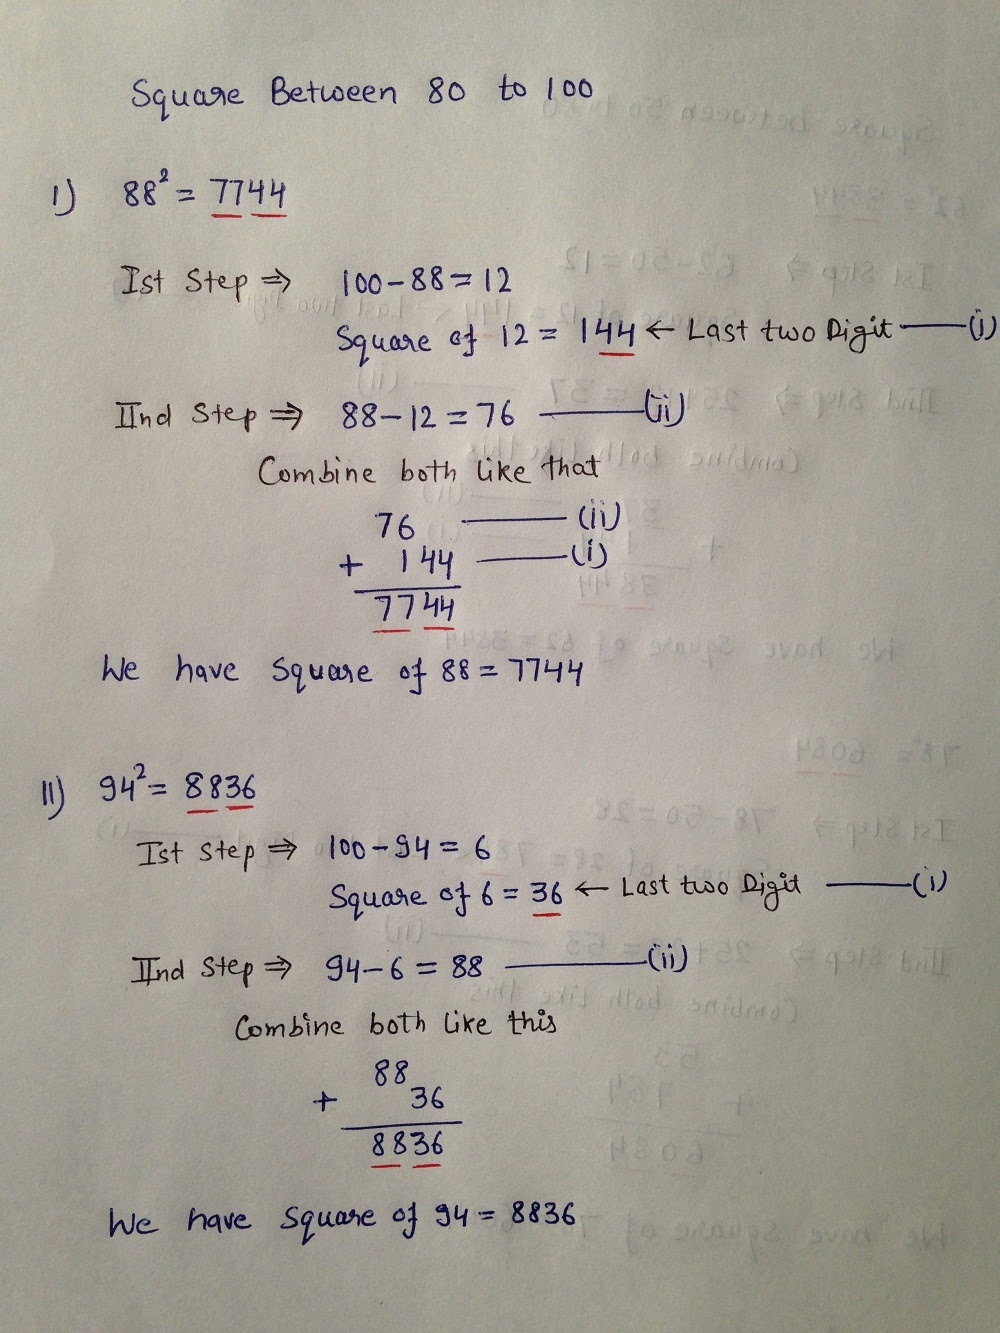 Square Between 80 to 100
I) 88² = 7744
Ist Step ⇒ 100-88=12
Square of 12 = 144 ← Last two Digit —— (i)
IInd Step ⇒ 88-12=76 —— (ii)
Combine both like that
76 —— (ii)
+ 144 —— (i)
7744
We have square of 88=7744
II) 94² = 8836
Ist step ⇒ 100-94 = 6
Square of 6 = 36 ← Last two Digit —— (i)
IInd step ⇒ 94-6 = 88 —— (ii)
Combine both like this
88
+ 36
8836
We have square of 94 = 8836